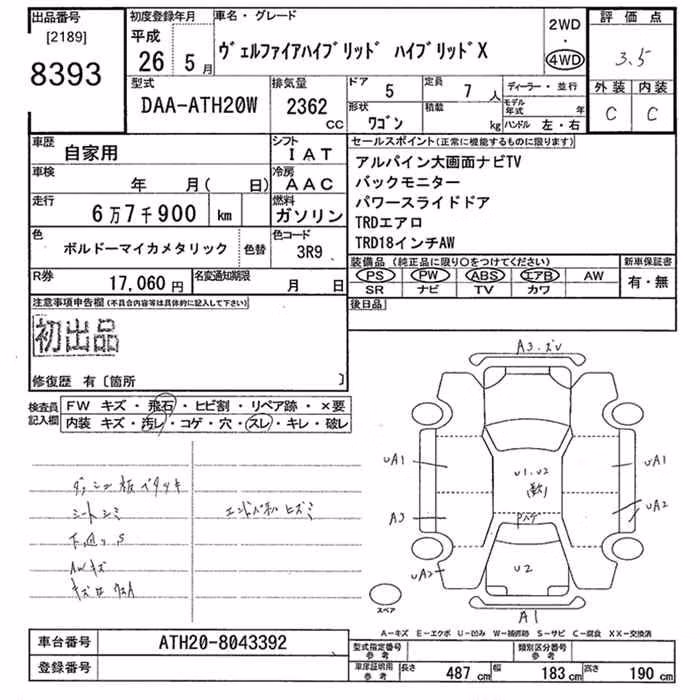 出品番号 初度登録年月 車名・グレード 2WD 評価点
[2189] 平成
8393 26 5月 ヴェルファイアハイブリッド ハイブリッドX 4WD 3.5
型式 排気量 ドア 5 定員 7人 ディーラー・並行 外装 内装
DAA-ATH20W 2362cc 形状 ワゴン 積載 kg モデル年式 年 C C
ハンドル 左・右
車歴 自家用 シフト IAT セールスポイント(正常に機能するものに限ります)
車検 年 月( 日) 冷房 AAC アルパイン大画面ナビTV
バックモニター
走行 6万7千900 km 燃料 ガソリン パワースライドドア
TRDエアロ
色 ボルドーマイカメタリック 色替 色コード 3R9 TRD18インチAW
装備品(純正品に限り○をつけてください) 新車保証書
R券 17,060円 名変通知期限 月 日 PS PW ABS エアB AW 有・無
SR ナビ TV カワ
注意事項申告欄(不具合内容等は具体的に記入して下さい) 後日品
初出品
修復歴 有〔箇所 〕
検査員記入欄 FW キズ・飛石・ヒビ割・リペア跡・×要
内装 キズ・汚レ・コゲ・穴・スレ・キレ・破レ
A3.ズレ
UA1 U1.U2 UA1
シートシミ A3 UA2
下廻り S
AWキズ UA2 U2
A1
スペア
A-キズ E-エクボ U-凹み W-補修跡 S-サビ C-腐食 XX-交換済
車台番号 ATH20-8043392 型式指定番号 参考 類別区分番号 参考
登録番号 車庫証明用 参考 長さ 487cm 幅 183cm 高さ 190cm